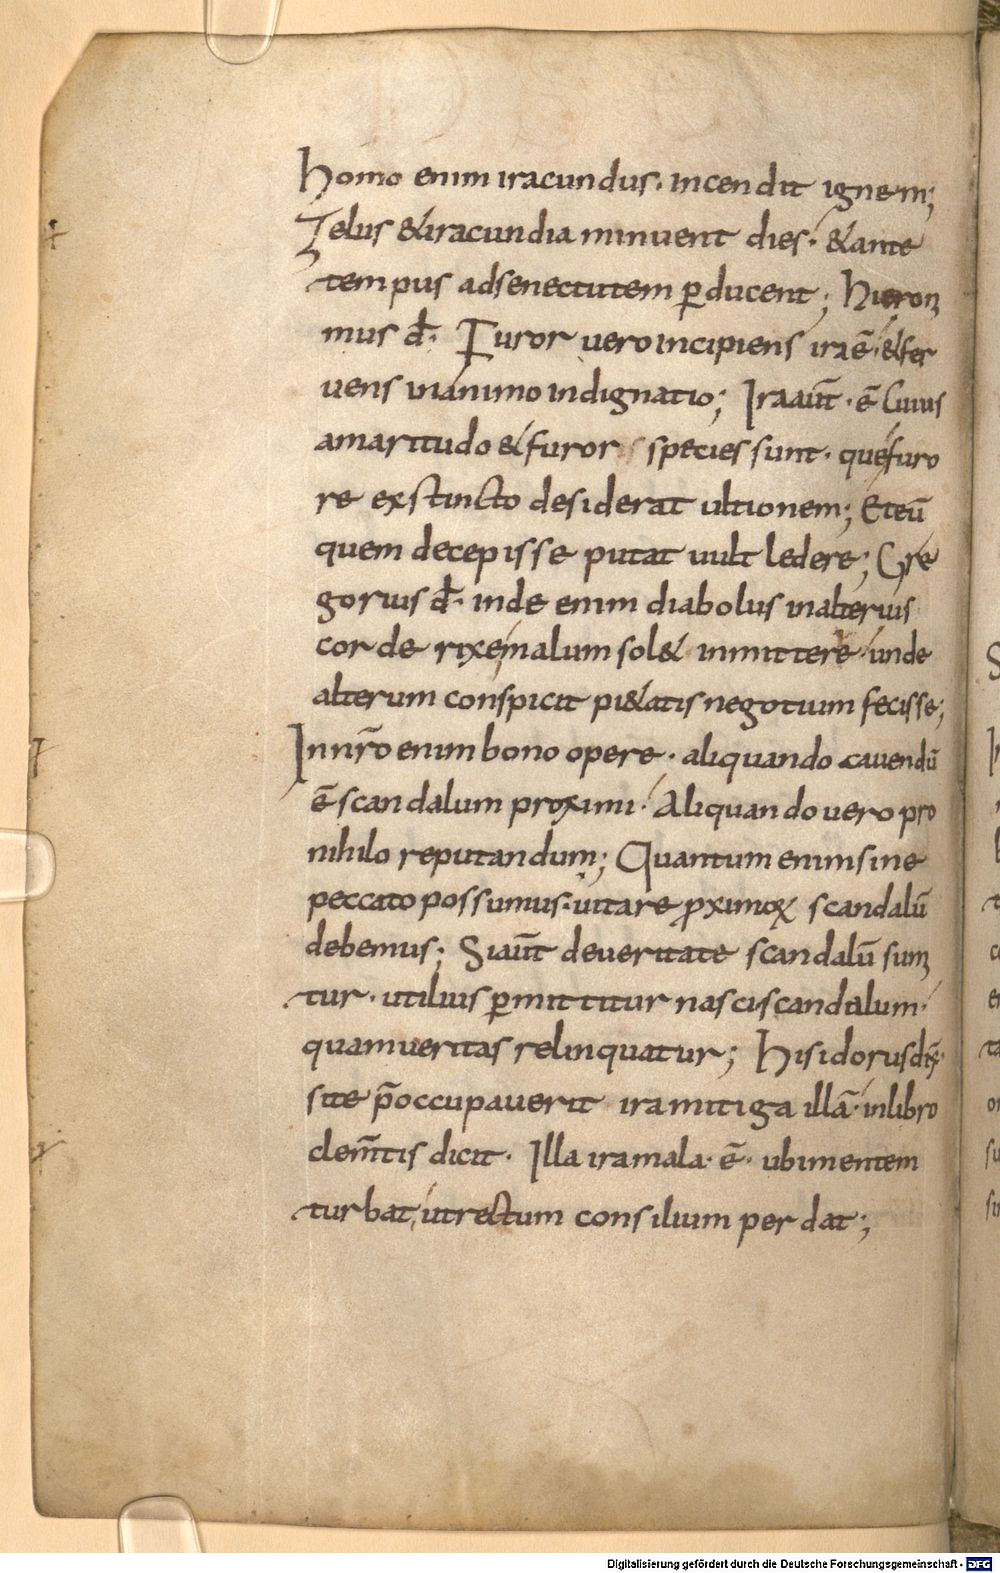 Homo enim iracundus· incendit ignem;
Zelus &iracundia minuent dies· &ante
tempus adsenectutem p̄ducent; hieron
mus d̄· Furor vero incipiens ira ē· &fer
uens inanimo indignatio; Ira aūt· ē cuius
amaritudo &furor species sunt· quę furo
re exstincto desiderat ultionem; Et eū
quem decepisse putat uult ledere; Gre
gorius d̄· inde enim diabolus inalterius
corde rixę malum sol& inmittere· unde
alterum conspicit pi&atis negotium fecisse;
In nr̄o enim bono opere· aliquando cauendū
ē scandalum proximi· Aliquando uero pro
nihilo reputandum; Quantum enim sine
peccato possumus· uitare ꝓximoꝝ scandalū
debemus; Si aūt deueritate scandalū sum
tur· utilius p̄mittitur nasci scandalum·
quam ueritas relinquatur; Hisidorus dix̄·
si te p̄occupauerit ira mitiga illā· inlibro
clem̄tis dicit· Illa ira mala· ē· ubi mentem
turbat, ut rectum consilium perdat;
Digitalisierung gefördert durch die Deutsche Forschungsgemeinschaft - DFG